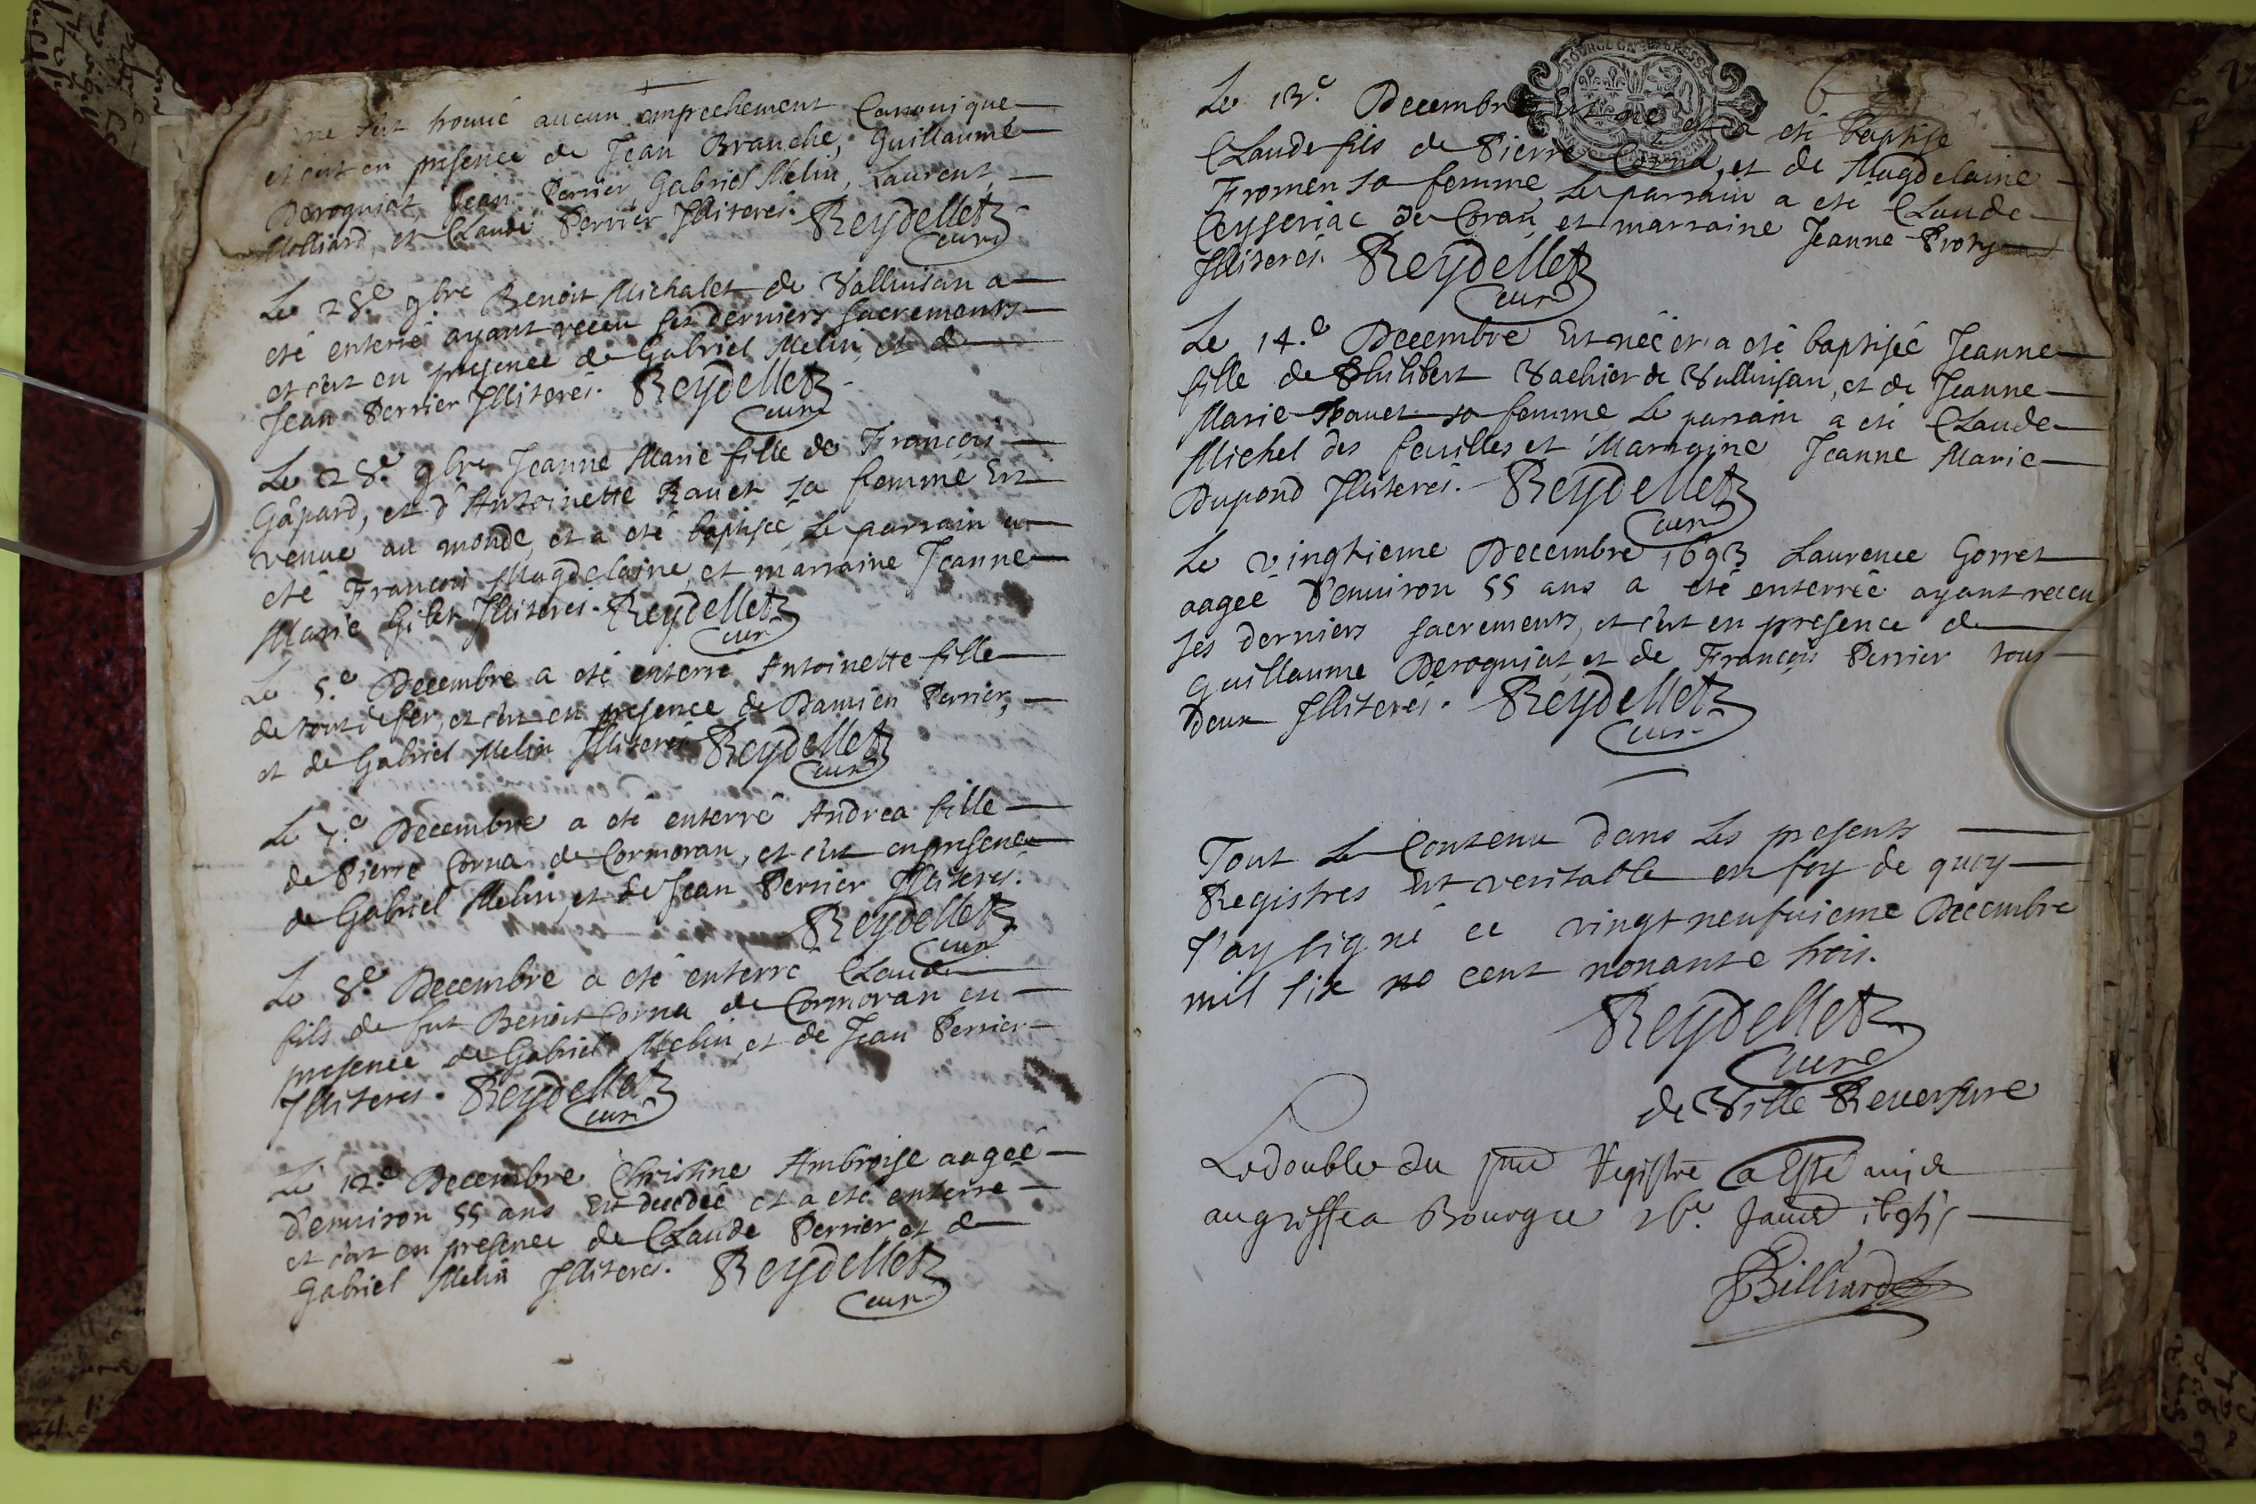 ne s'est trouvé aucun empechement Canonique
et c'est en presence de Jean Branche, Guillaume
Deroguiat, Jean Perrier, Gabriel Melin, Laurent
Molliard, et Claude Perrier Illiterés. Reydellet
curé
Le 28.e 9.bre Benoit Michalet de Vallinsan a
eté enterré ayant receu ses derniers sacrements
et c'est en presence de Gabriel Melin, et de
Jean Perrier Illiterés. Reydellet
curé
Le 28.e 9bre Jeanne Marie fille de François
Gapard, et d'Antoinette Ravet sa femme est
venue au monde, et a eté baptisée le parrain a
eté François Magdelaine, et marraine Jeanne
Marie Gilet Illiterés. Reydellet
curé
Le 5.e Decembre a eté enterré Antoinette fille
de et c'est en presence de Damien Perrier,
et de Gabriel Melin Illiterés Reydellet
curé
Le 7.e Decembre a eté enterré Andrea fille
de Pierre Corna de Cormoran, et c'est en presence
de Gabriel Melin, et de Jean Perrier Illiterés.
Reydellet
curé
Le 8.e Decembre a eté enterré Claude
fils de fut Benoit Corna de Cormoran en
presence de Gabriel Melin, et de Jean Perrier
Illiteres. Reydellet
curé
Le 12.e Decembre Christine Ambroise aageé
d'environ 55 ans est decedeé et a eté enterre
et c'est en presence de Claude Perrier, et de
Gabriel Melin Illiteres. Reydellet
curé
6
Le 13.e Decembre Est né et a eté baptise
Claude fils de Pierre Corna, et de Magdelaine
Fromen sa femme, le parrain a eté Claude
Ceyseriac de Coran, et marraine Jeanne
Illiterés. Reydellet
curé
Le 14.e Decembre Est neé et a eté baptiseé Jeanne
fille de Philibert Vachier de Vallinsan, et de Jeanne
Marie Ravet sa femme le parrain a eté Claude
Michel des feuilles et Marraine Jeanne Marie
Dupond Illiterés. Reydellet
curé
Le vingtieme Decembre 1693 Laurence Gorret
aageé d'environ 55 ans a eté enterreé ayant receu
ses derniers sacrements, et c'est en presence de
guillaume Deroguiat, et de François Perrier tous
deux Illiterés. Reydellet
curé
Tout le Contenu dans les presents
Registres est veritable en foy de quoy
j'ay signé ce vingt neufuieme Decembre
mil six cent nonante trois.
Reydellet
curé
de Ville Reversure
Le double du pnt Registre a Esté mis
au greffe a Bourg ce
Billiard